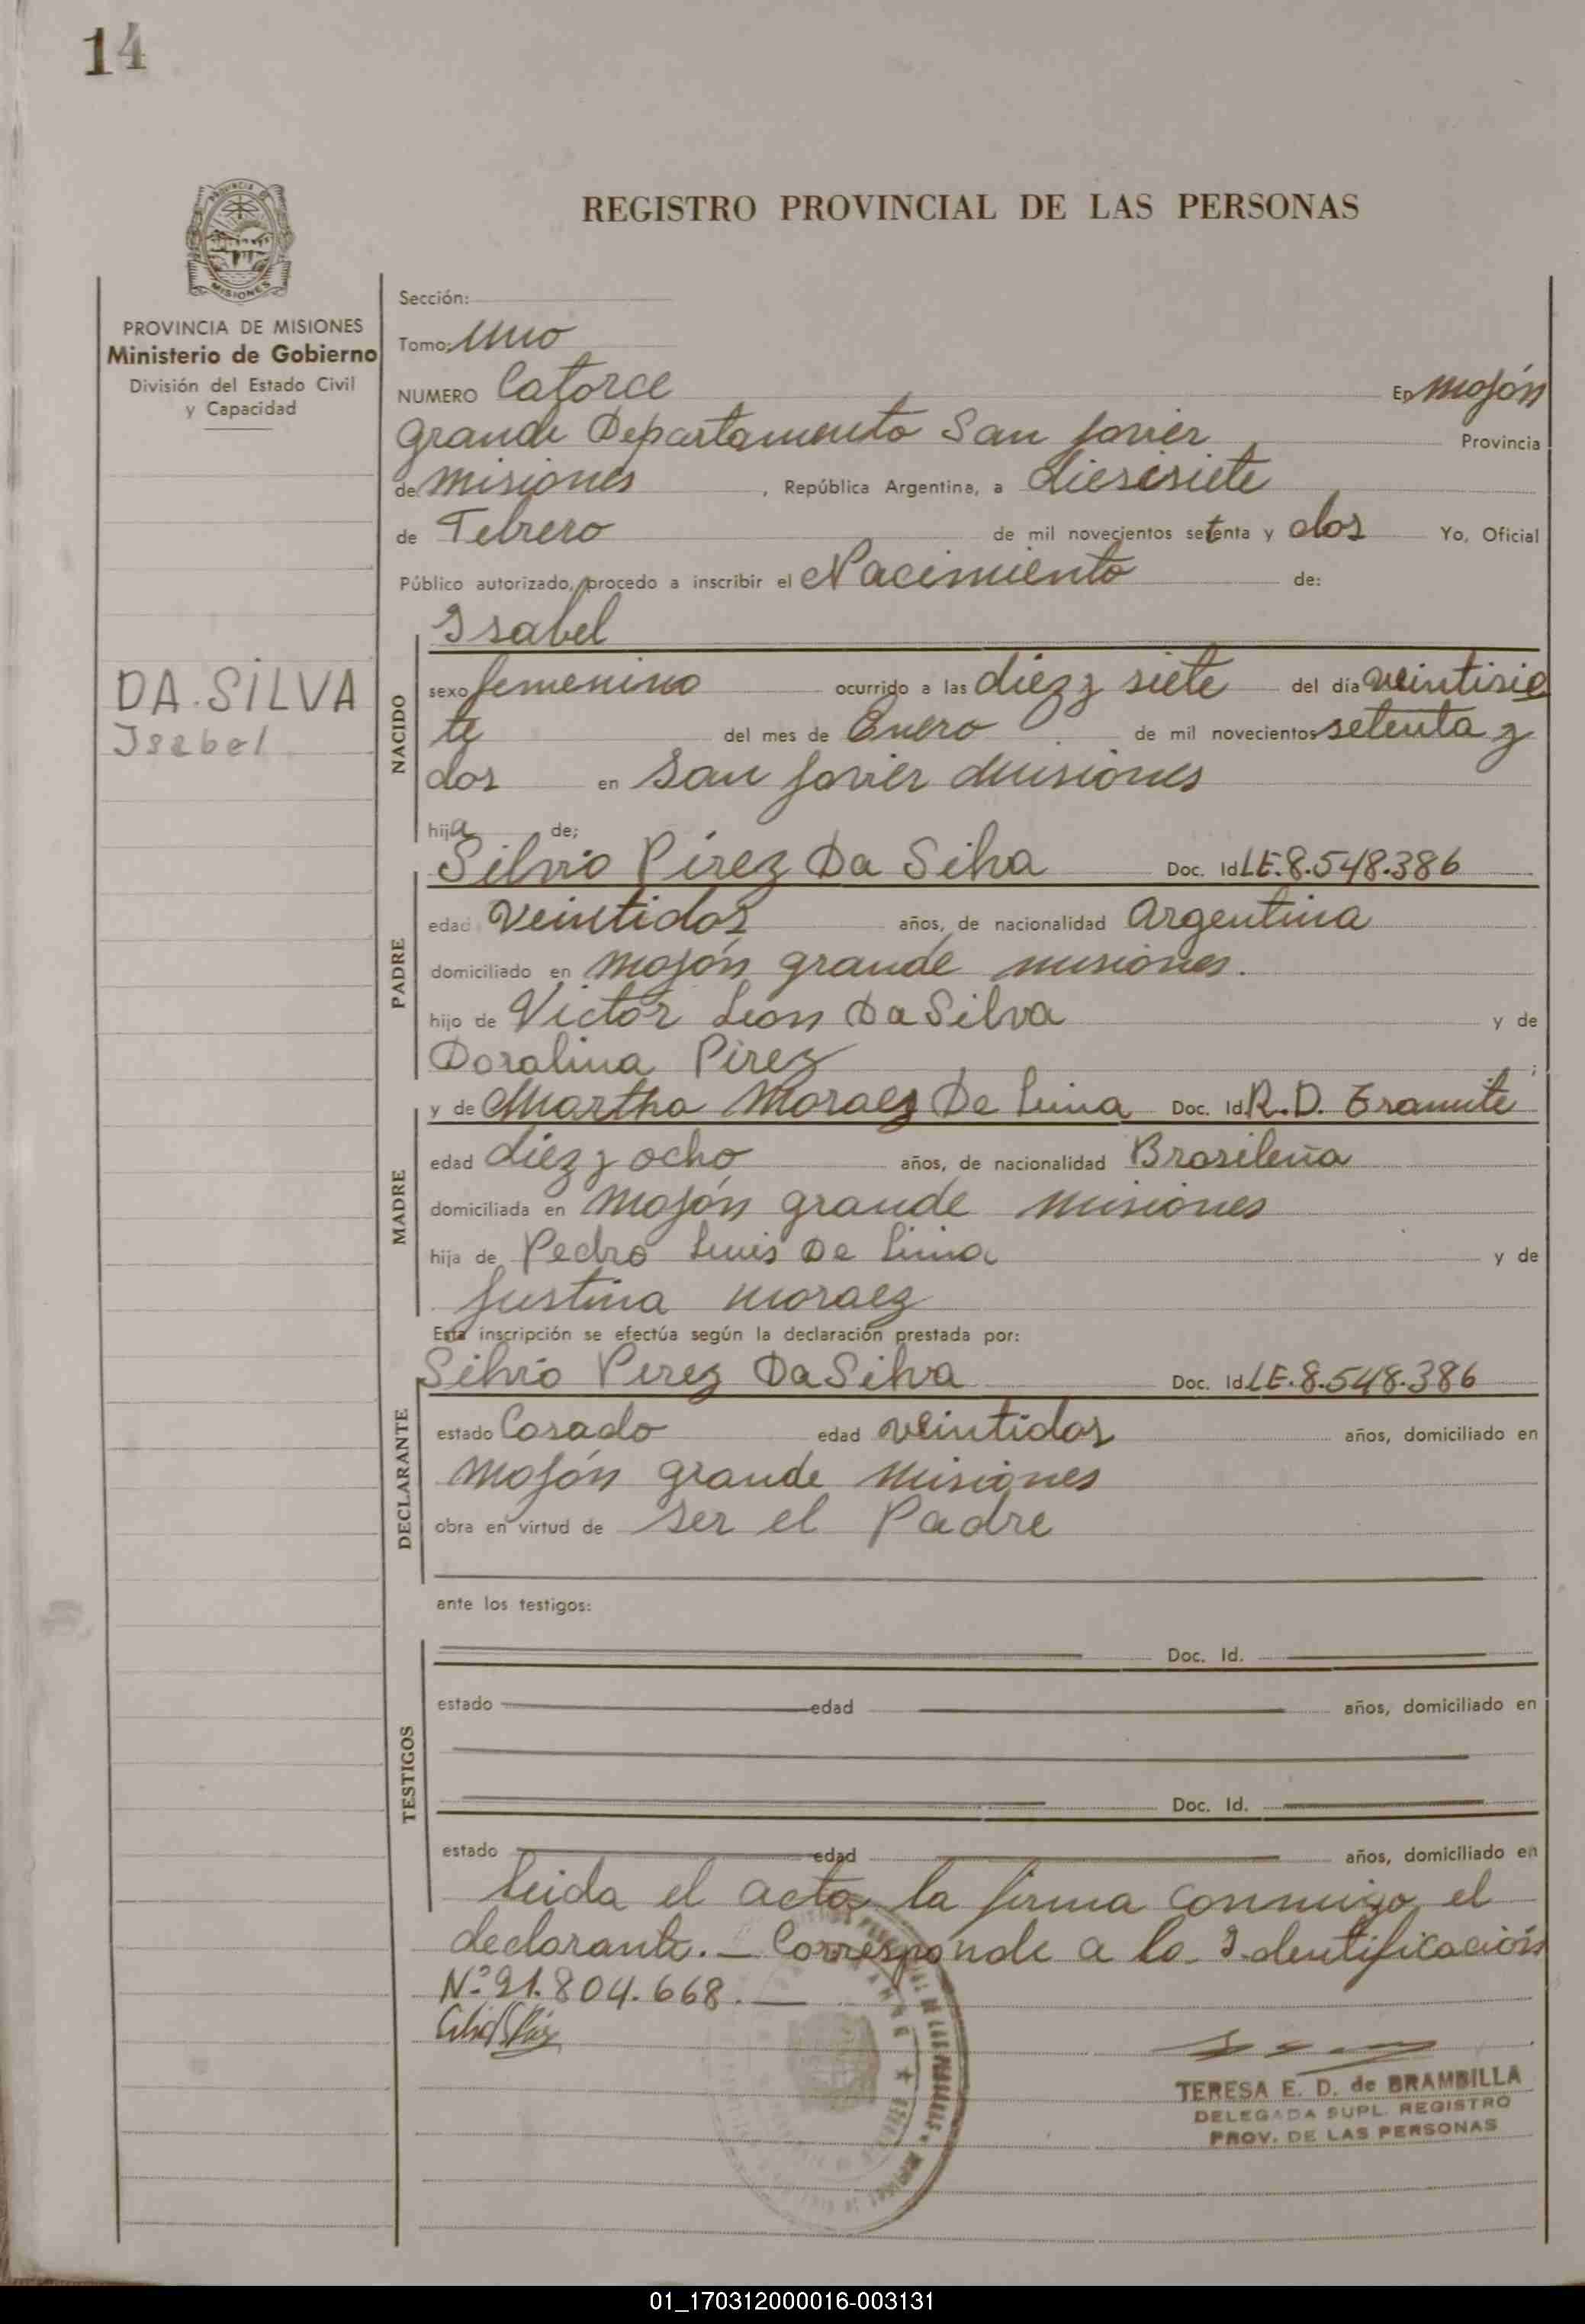 14
REGISTRO PROVINCIAL DE LAS PERSONAS
MISIONES
PROVINCIA DE MISIONES
Ministerio de Gobierno
División del Estado Civil
y Capacidad
Sección:
Tomo: Uno
NUMERO Catorce En Mojón
grande Departamento San Javier Provincia
de Misiones, República Argentina, a diesisiete
de Febrero de mil novecientos setenta y dos Yo, Oficial
Público autorizado, procedo a inscribir el Nacimiento de:
DA.SILVA
Isabel
NACIDO
Isabel
sexo femenino ocurrido a las diez y siete del día veintisie
te del mes de Enero de mil novecientos setenta y
dos en San Javier Misiones
hija de;
PADRE
Silvio Pirez Da Silva Doc. Id LE.8.548.386
edad veintidos años, de nacionalidad Argentina
domiciliado en Mojón grande misiones.
hijo de Victor Leon Da Silva y de
Doralina Pirez ;
MADRE
y de Martha Moraez De Lima Doc. Id R.D. Tramite
edad diez y ocho años, de nacionalidad Brasileña
domiciliada en Mojón grande Misiones
hija de Pedro Luis De Lima y de
Justina Moraez
Esta inscripción se efectúa según la declaración prestada por:
DECLARANTE
Silvio Perez Da Silva Doc. Id LE.8.548.386
estado Casado edad veintidos años, domiciliado en
Mojón grande Misiones
obra en virtud de ser el Padre
ante los testigos:
TESTIGOS
Doc. Id.
estado edad años, domiciliado en
Doc. Id.
estado edad años, domiciliado en
Leida el acta la firma conmigo el
declarante. — Corresponde a la Identificación
Nº 21.804.668. —
TERESA E. D. de BRAMBILLA
DELEGADA SUPL. REGISTRO
PROV. DE LAS PERSONAS
01_170312000016-003131